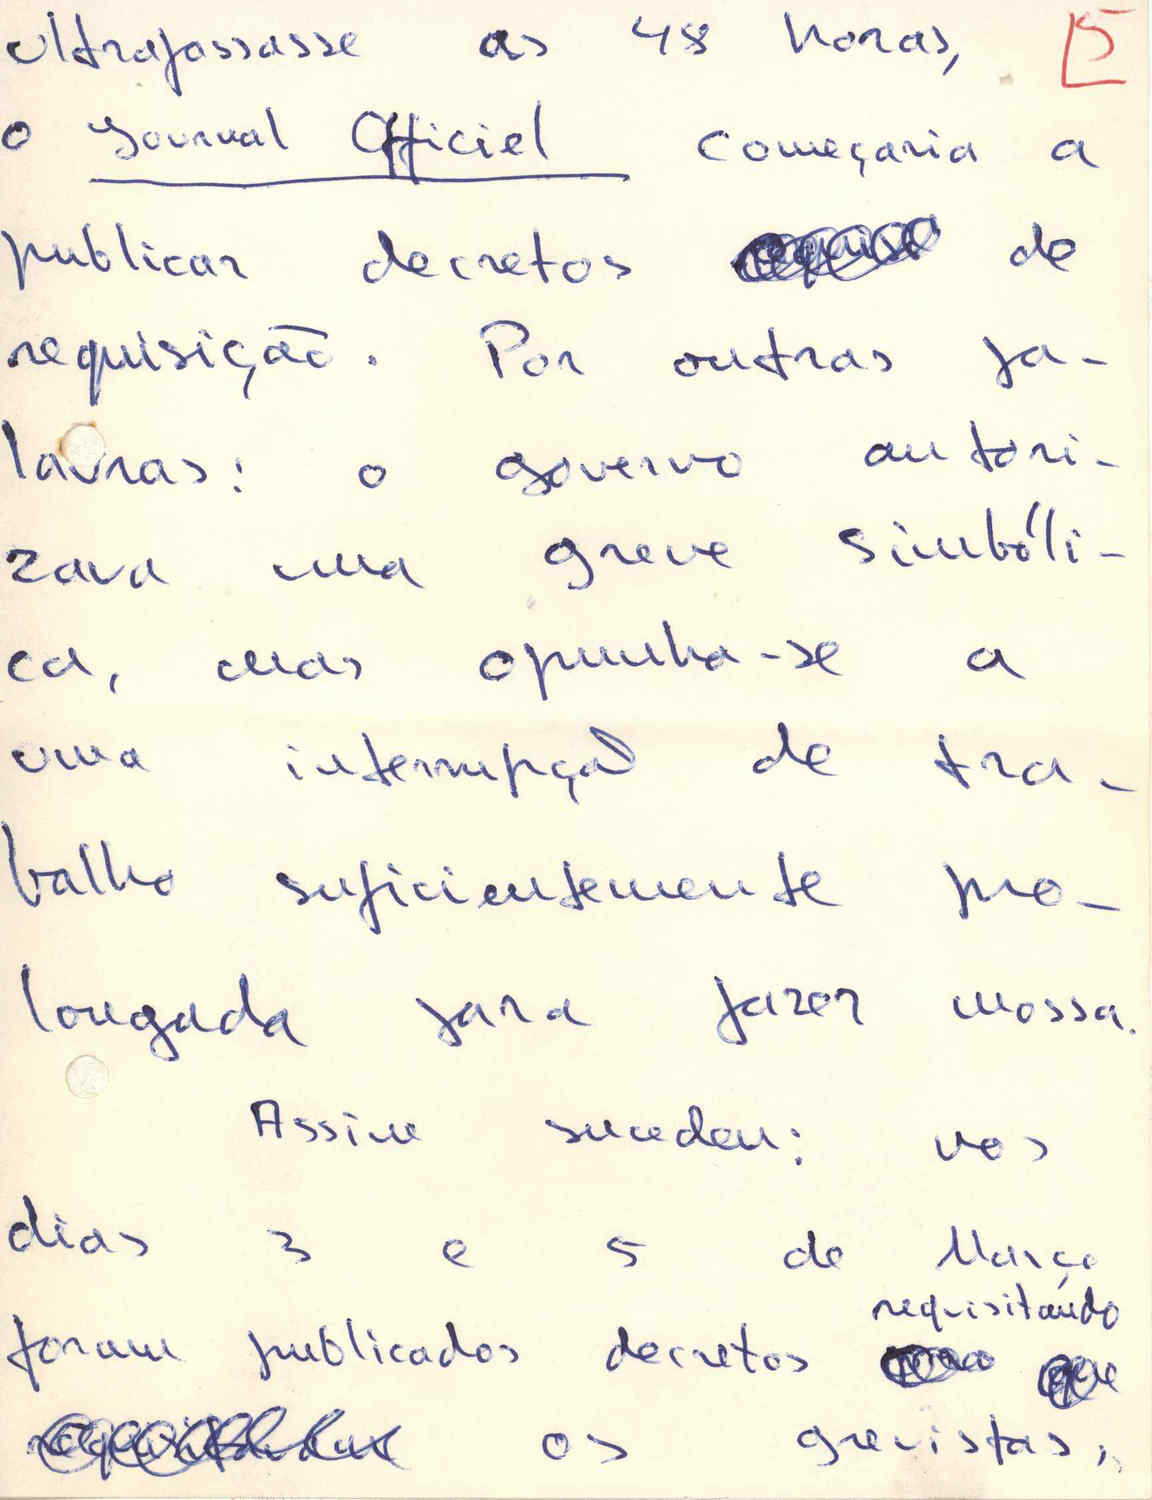 ultrapassasse as 48 horas, 5
o Journal Officiel começaria a
publicar decretos de
requisição. Por outras pa-
lavras: o governo autori-
zava uma greve simbóli-
ca, mas opunha-se a
uma interrupção de tra-
balho suficientemente pro-
longada para fazer mossa.
Assim sucedeu: nos
dias 3 e 5 de Março
requisitando
foram publicados decretos
os grevistas,